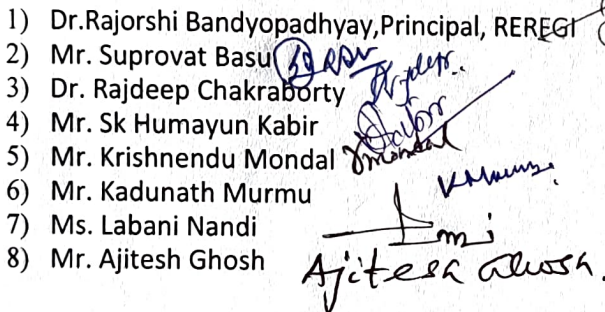 1) Dr.Rajorshi Bandyopadhyay,Principal, REREGI
2) Mr. Suprovat Basu
3) Dr. Rajdeep Chakraborty
4) Mr. Sk Humayun Kabir
5) Mr. Krishnendu Mondal Mondal
6) Mr. Kadunath Murmu
7) Ms. Labani Nandi
8) Mr. Ajitesh Ghosh Ajitesh Ghosh.